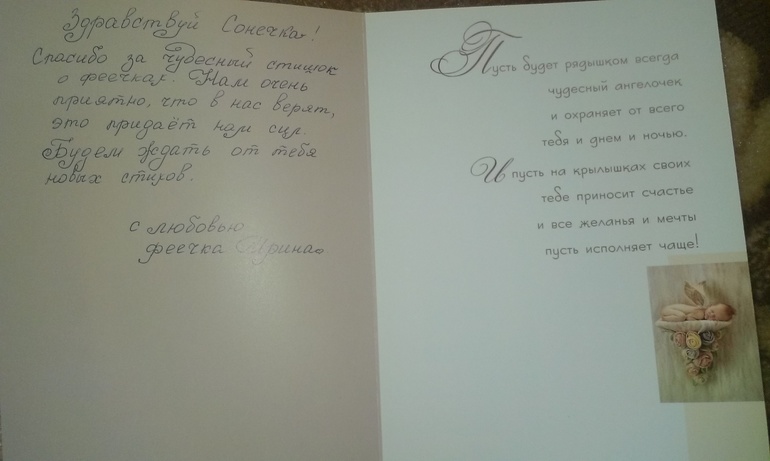 Здравствуй Сонечка!
Спасибо за чудесный стишок
о феечках. Нам очень
приятно, что в нас верят,
это придаёт нам сил.
Будем ждать от тебя
новых стихов.
с любовью
феечка Ирина
Пусть будет рядышком всегда
чудесный ангелочек
и охраняет от всего
тебя и днем и ночью.
И пусть на крылышках своих
тебе приносит счастье
и все желанья и мечты
пусть исполняет чаще!